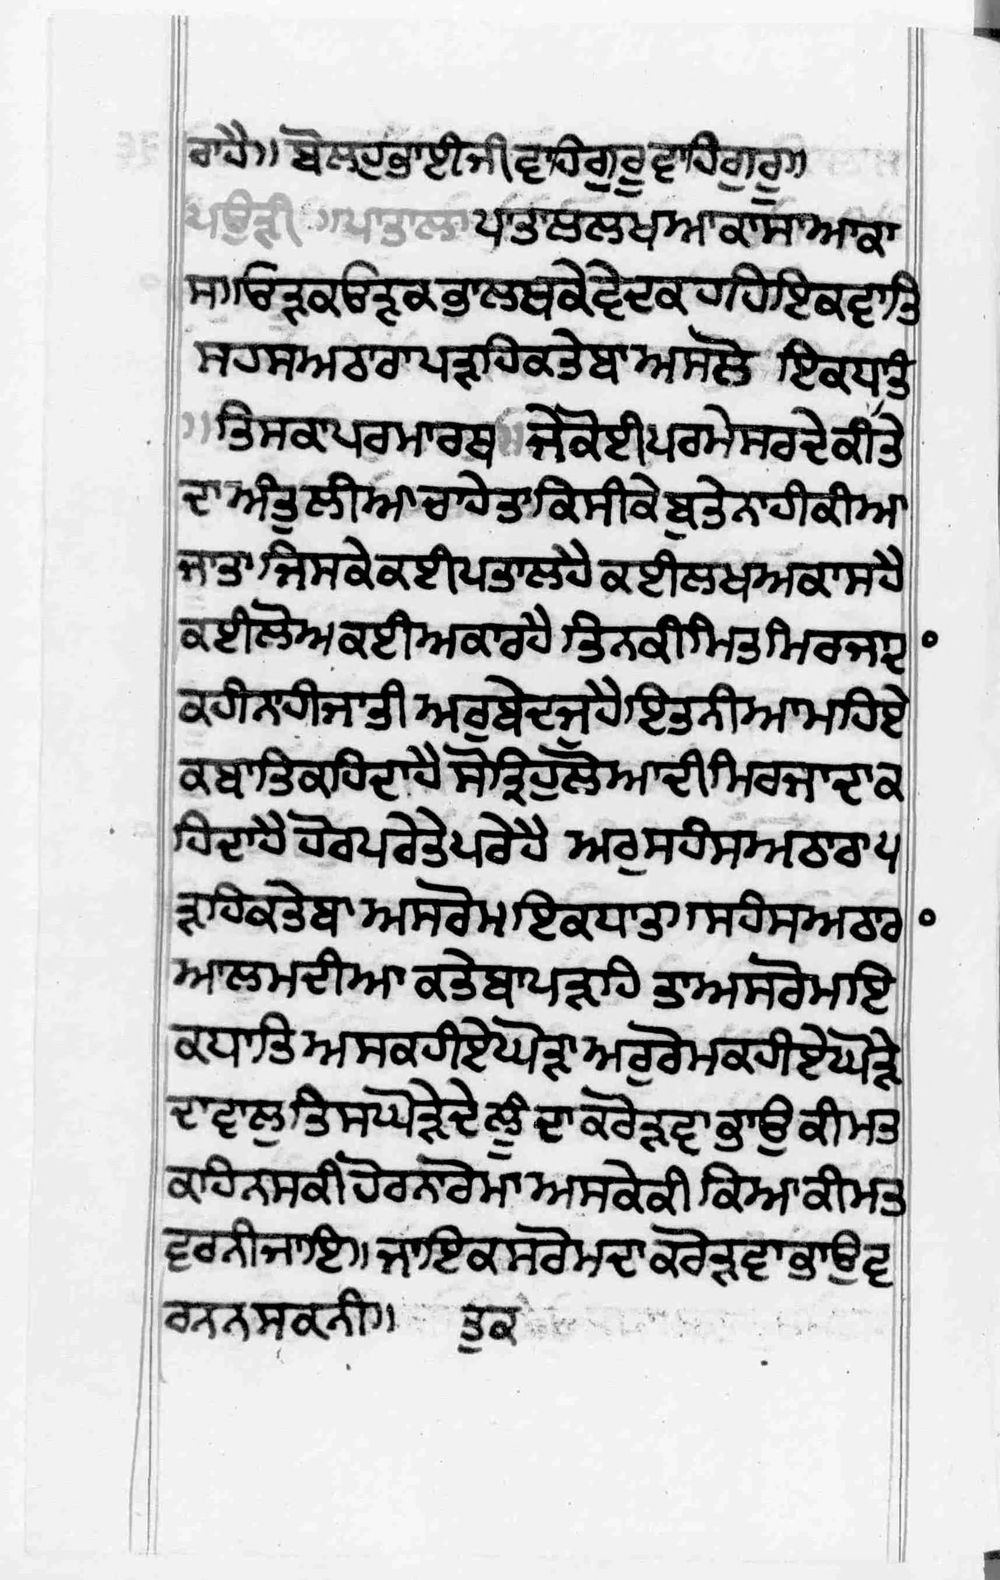 ਰਾਹੈ॥ ਬੋਲਹੁਭਾਈਜੀਵਾਹਿਗੁਰੂਵਾਹਿਗੁਰੂ॥
ਪਉੜੀ ॥ਪਾਤਾਲਾ ਪਾਤਾਲਲਖਆਕਾਸਾਆਕਾ
ਸ॥ਓੜਕਓੜਕਭਾਲਥਕੇਵੇਦਕਹਹਿਇਕਵਾਤਿ
ਸਹਸਅਠਾਰਾਪੜਹਿਕਤੇਬਾਅਸਲੋ ਇਕਧਾਤੁ
॥ਤਿਸਕਾਪਰਮਾਰਥ॥ਜੇਕੋਈਪਰਮੇਸਰਦੇਕੀਤੇ
ਦਾਅੰਤੁਲੀਆਚਾਹੇਤਾਕਿਸੀਕੇਬੂਤੇਨਾਹੀਕੀਆ
ਜਾਤਾ।ਜਿਸਕੇਕਈਪਤਾਲਹੈਕਈਲਖਅਕਾਸਹੈ
ਕਈਲੋਅਕਈਅਕਾਰਹੈਤਿਨਕੀਮਿਤਮਿਰਜਾਦ
ਕਹੀਨਾਹੀਜਾਤੀਅਰੁਬੇਦਜੁਹੈਇਤਨੀਆਮਹਿਏ
ਕਬਾਤਿਕਹਿਦਾਹੈਸੋਤ੍ਰਿਹੁਲੋਆਦੀਮਿਰਜਾਦਾਕ
ਹਿਦਾਹੈਹੋਰਪਰੇਤੇਪਰੇਹੈ ਅਰੁਸਹੰਸਅਠਾਰਾਪ
ੜਹਿਕਤੇਬਾਅਸਰੋਮਾਇਕਧਾਤ॥ਸਹੰਸਅਠਾਰ
ਆਲਮਦੀਆਕਤੇਬਾਪੜਹਿ ਤਾਅਸਰੋਮਾਇ
ਕਧਾਤਿਅਸਕਹੀਏਘੋੜਾਅਰੁਰੋਮਕਹੀਏਘੋੜੇ
ਦਾਵਾਲੁਤਿਸਘੋੜੇਦੇਲੂੰਦਾਕਰੋੜਵਾਭਾਉਕੀਮਤ
ਕਾਹਿਨਸਕੀਹੋਰਨਾਰੋਮਾਅਸਕੇਕੀਕਿਆਕੀਮਤ
ਵਰਨੀਜਾਇ॥ਜਾਇਕਸਰੋਮਦਾਕਰੋੜਵਾਭਾਉਵ
ਰਨਨਸਕਨੀ॥ ਤੁਕ